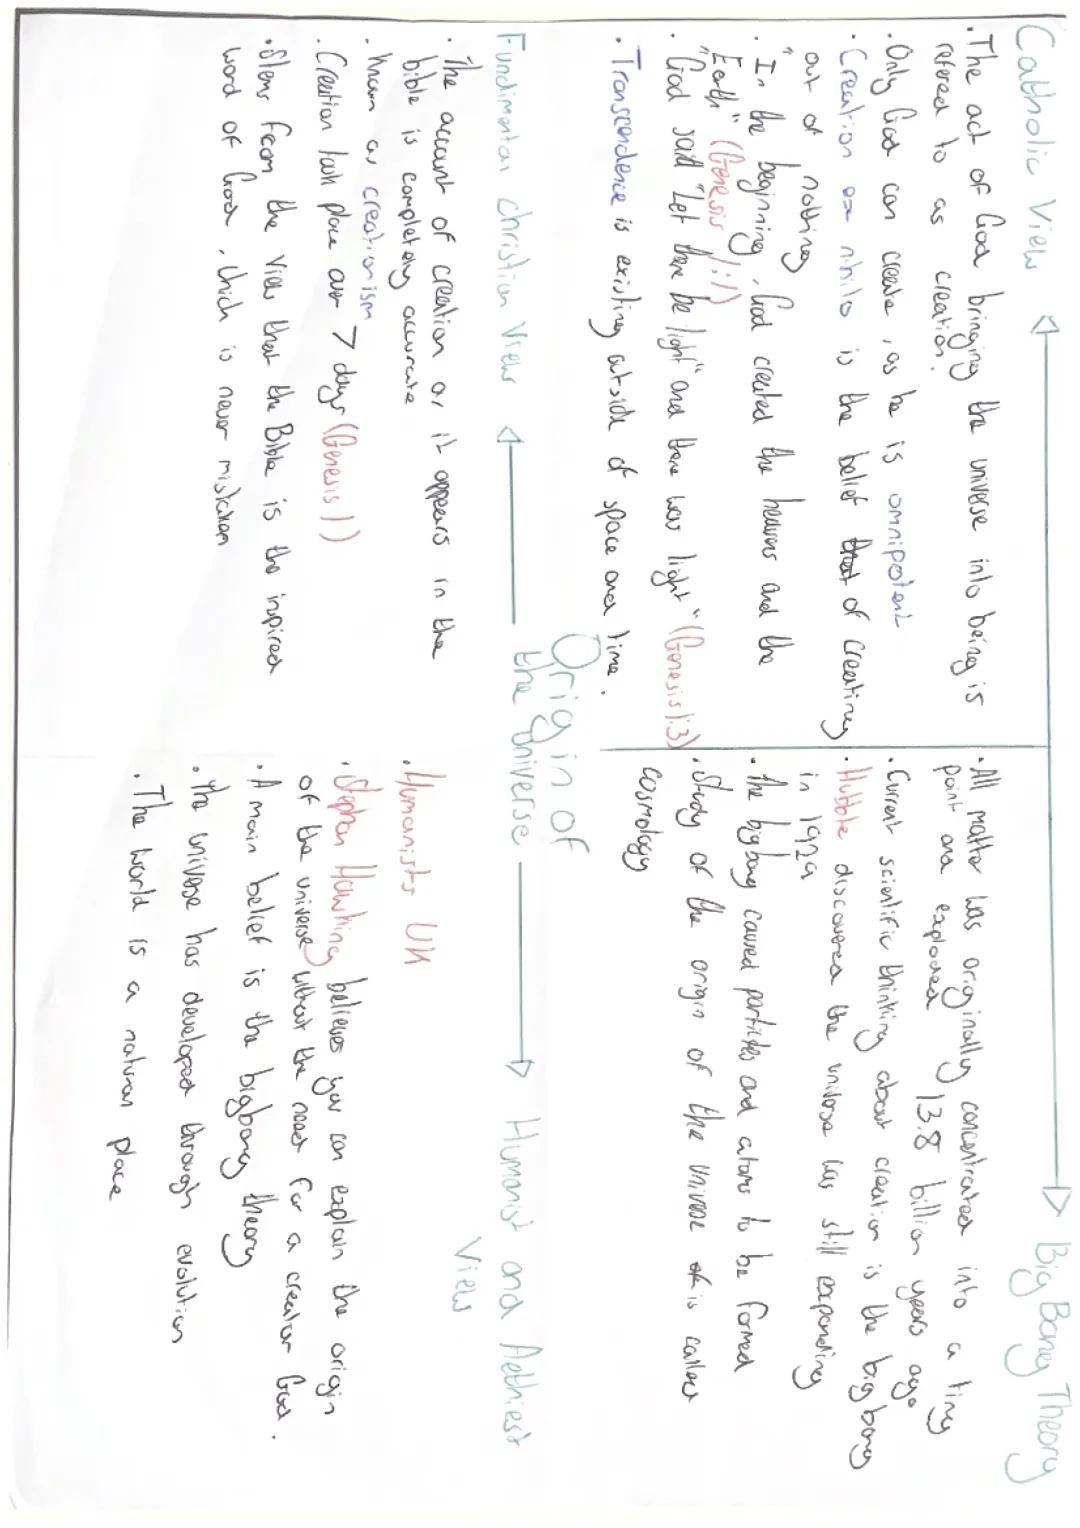 Catholic View
· The act of God bringing the universe into being is
refered to as creation.
· Only God can create, as he is omnipotent
· Creation ex nihilo is the belief that of creating
out of nothing
· "In the beginning, God created the heavens and the
Earth" (Genesis 1:1)
· "God said "Let there be light" and there was light" (Genesis 1:3)
· Transcendence is existing outside of space and time.
Big Bang Theory
· All matter was originally concentrated into a tiny
point and exploded 13.8 billion years ago
· Current scientific thinking about creation is the big bang
· Hubble discovered the universe was still expanding
in 1929
· The big bang caused particles and atoms to be formed
· Study of the origin of the universe is called
cosmology
Origin of
the Universe
Fundimental christian View
· The account of creation as it appears in the
bible is completely accurate
· known as creationism
· Creation took place over 7 days (Genesis 1)
· Stems from the view that the Bible is the inspired
word of God, which is never mistaken
Humanist and Aethiest
View
· Humanists UK
· Stephen Hawking believes you can explain the origin
of the universe without the need for a creator God.
· A main belief is the big bang theory
· The universe has developed through evolution
· The world is a natural place